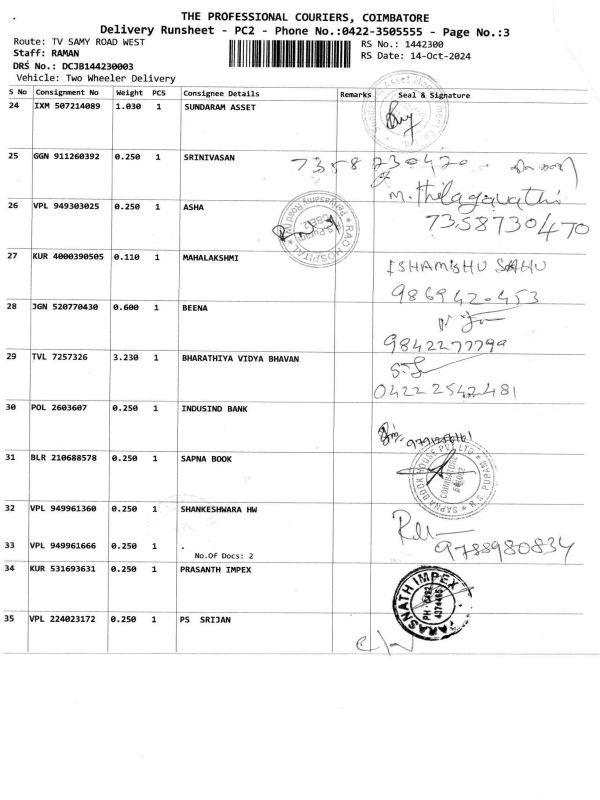 THE PROFESSIONAL COURIERS, COIMBATORE
Delivery Runsheet - PC2 - Phone No.:0422-3505555 - Page No.:3
Route: TV SAMY ROAD WEST
RS No.: 1442300
Staff: RAMAN
RS Date: 14-Oct-2024
DRS No.: DCJB144230003
Vehicle: Two Wheeler Delivery
S No Consignment No Weight PCS Consignee Details Remarks Seal & Signature
24 IXM 507214089 1.030 1 SUNDARAM ASSET
25 GGN 911260392 0.250 1 SRINIVASAN
7358730470
M. Thilagavathi
26 VPL 949303025 0.250 1 ASHA
7358730470
RAO HOSPITAL
27 KUR 4000390505 0.110 1 MAHALAKSHMI
ISHAMISHU SAHU
28 JGN 520770430 0.600 1 BEENA
9842277799
29 TVL 7257326 3.230 1 BHARATHIYA VIDYA BHAVAN
0422 2542481
30 POL 2603607 0.250 1 INDUSIND BANK
31 BLR 210688578 0.250 1 SAPNA BOOK
SAPNA BOOK HOUSE PVT LTD
COIMBATORE
R.S. PURAM
32 VPL 949961360 0.250 1 SHANKESHWARA HW
33 VPL 949961666 0.250 1 .
9788980834
No.Of Docs: 2
34 KUR 531693631 0.250 1 PRASANTH IMPEX
PARASNATH IMPEX
35 VPL 224023172 0.250 1 PS SRIJAN